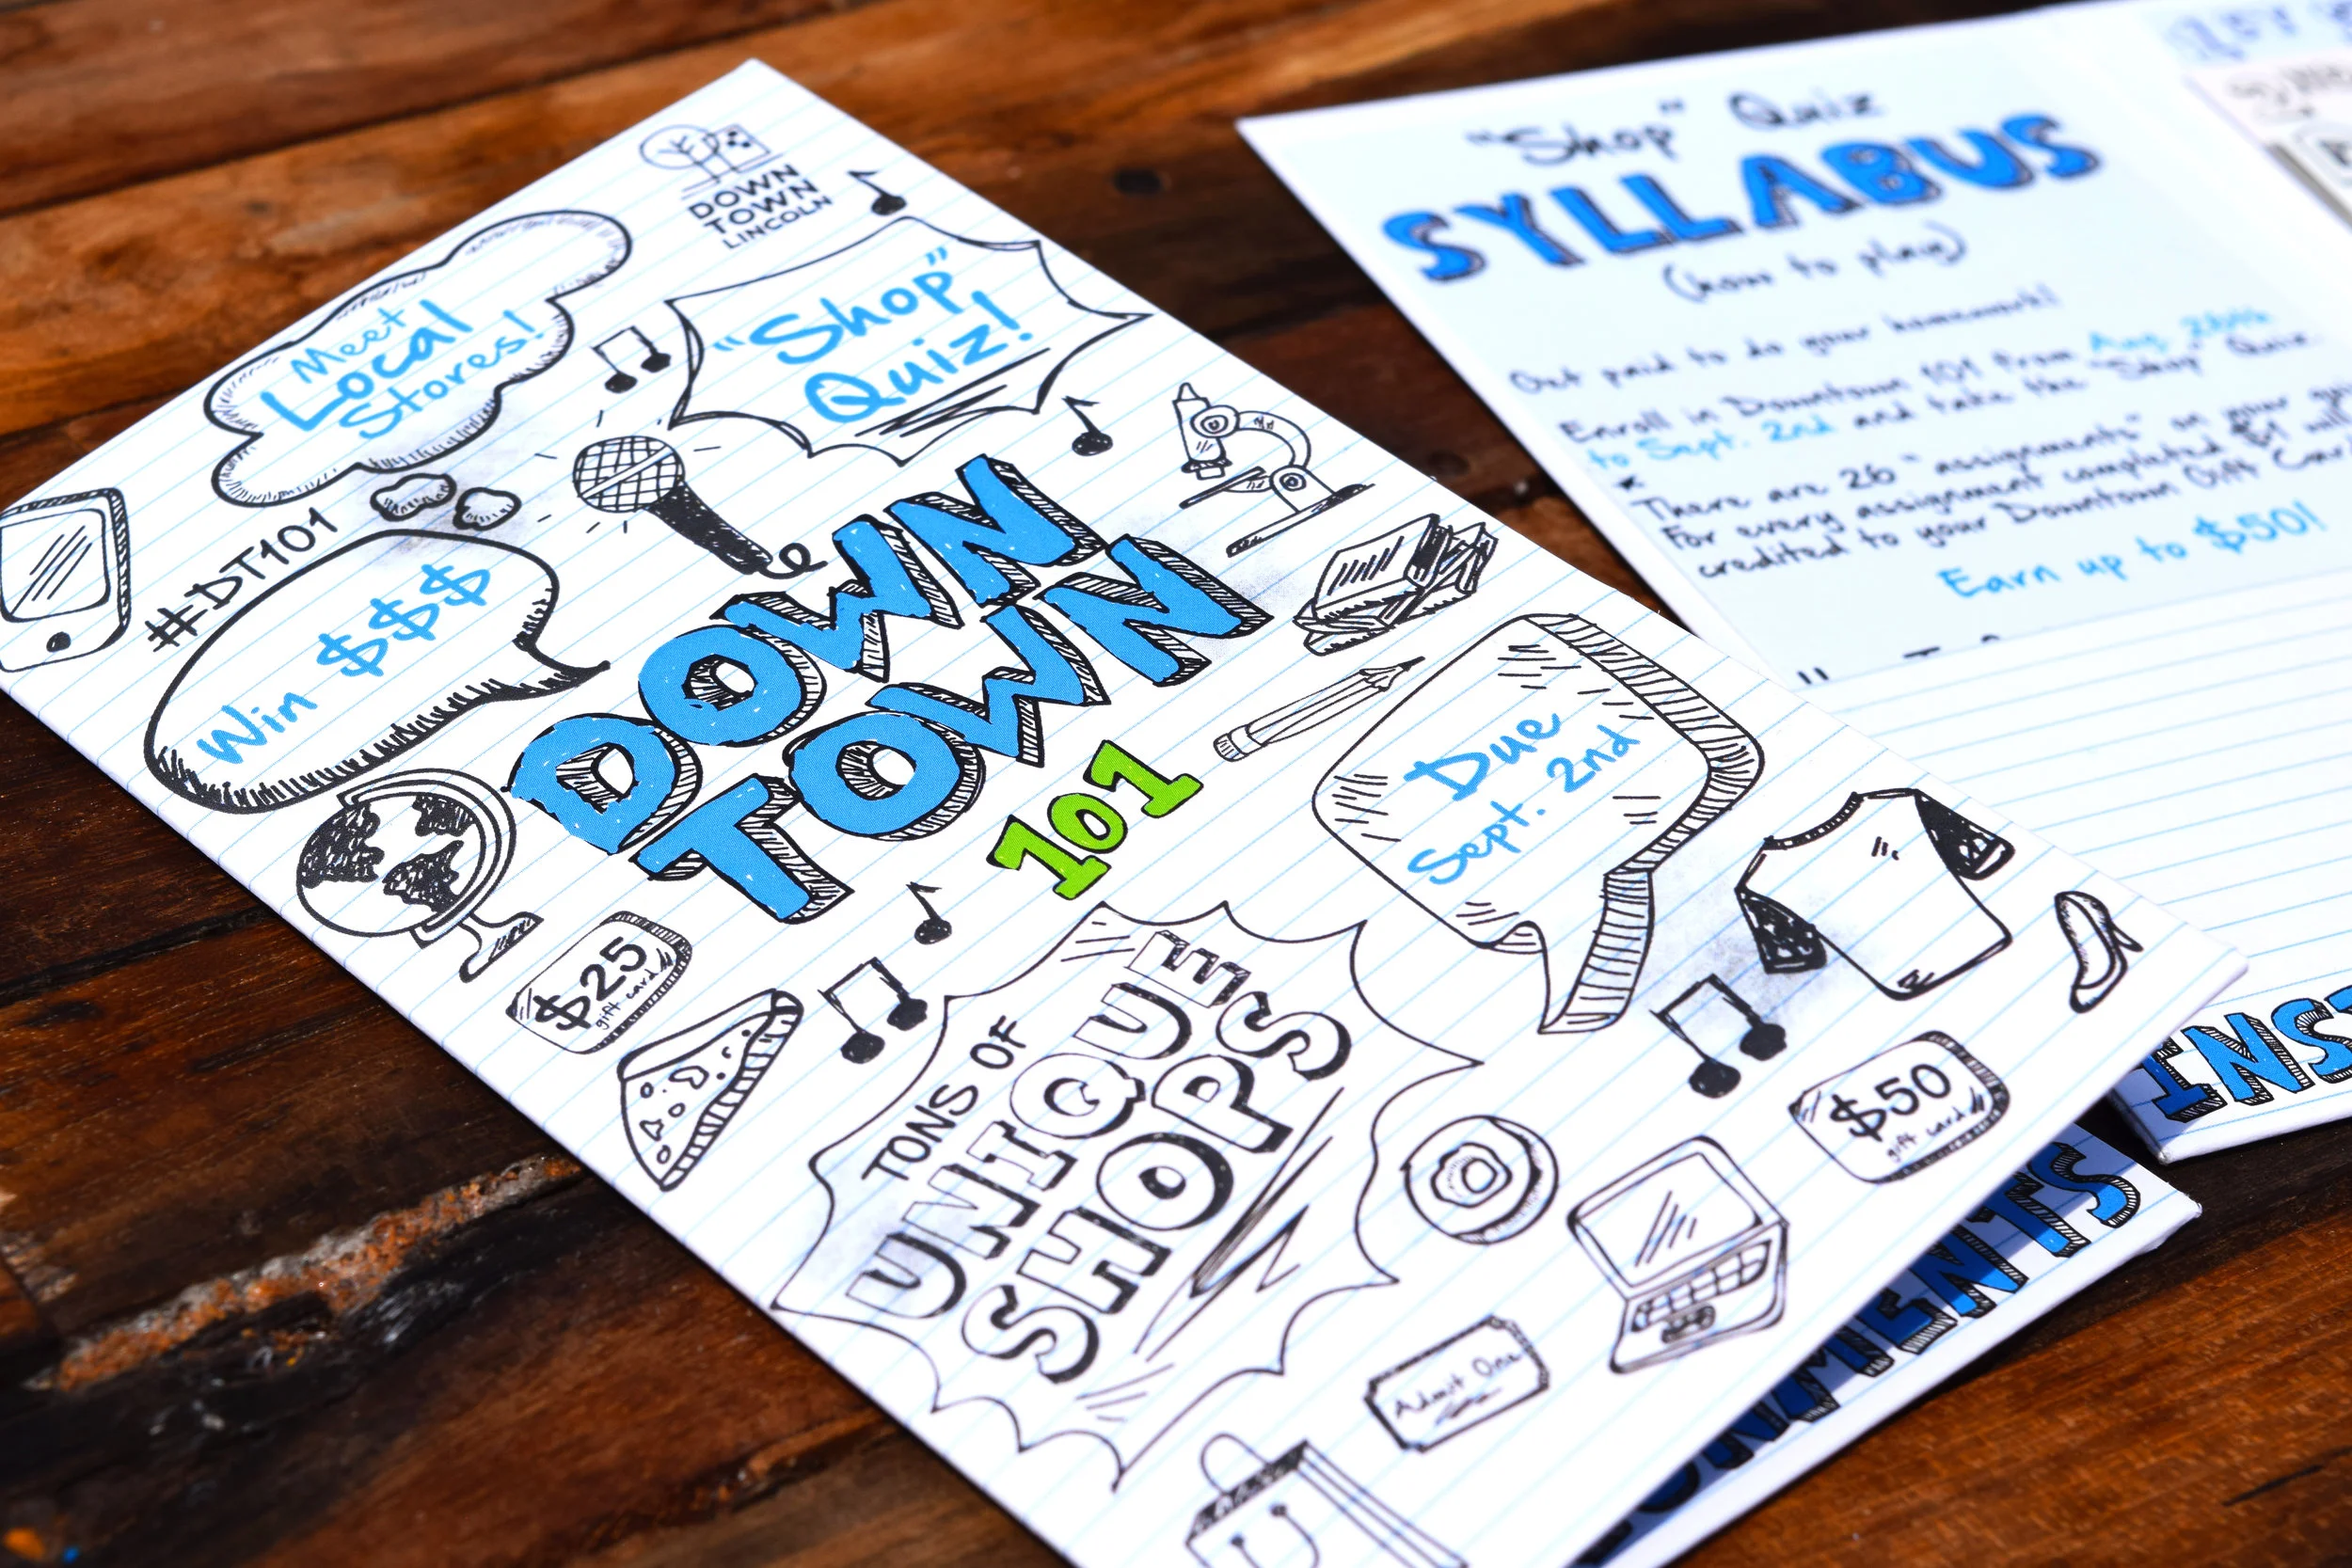 DOWN
TOWN
LINCOLN
Meet
Local
Stores!
"Shop"
Quiz!
#DT101
Win $$$
DOWN
TOWN
101
Due
Sept. 2nd
$25
gift card
TONS OF
UNIQUE
SHOPS
$50
gift card
Admit One
"Shop" Quiz
SYLLABUS
(how to play)
Get paid to do your homework!
Enroll in Downtown 101 from Aug. 26th
to Sept. 2nd and take the "Shop" Quiz
There are 26 "assignments" on your
For every assignment completed $1 will
credited to your Downtown Gift Card
Earn up to $50!